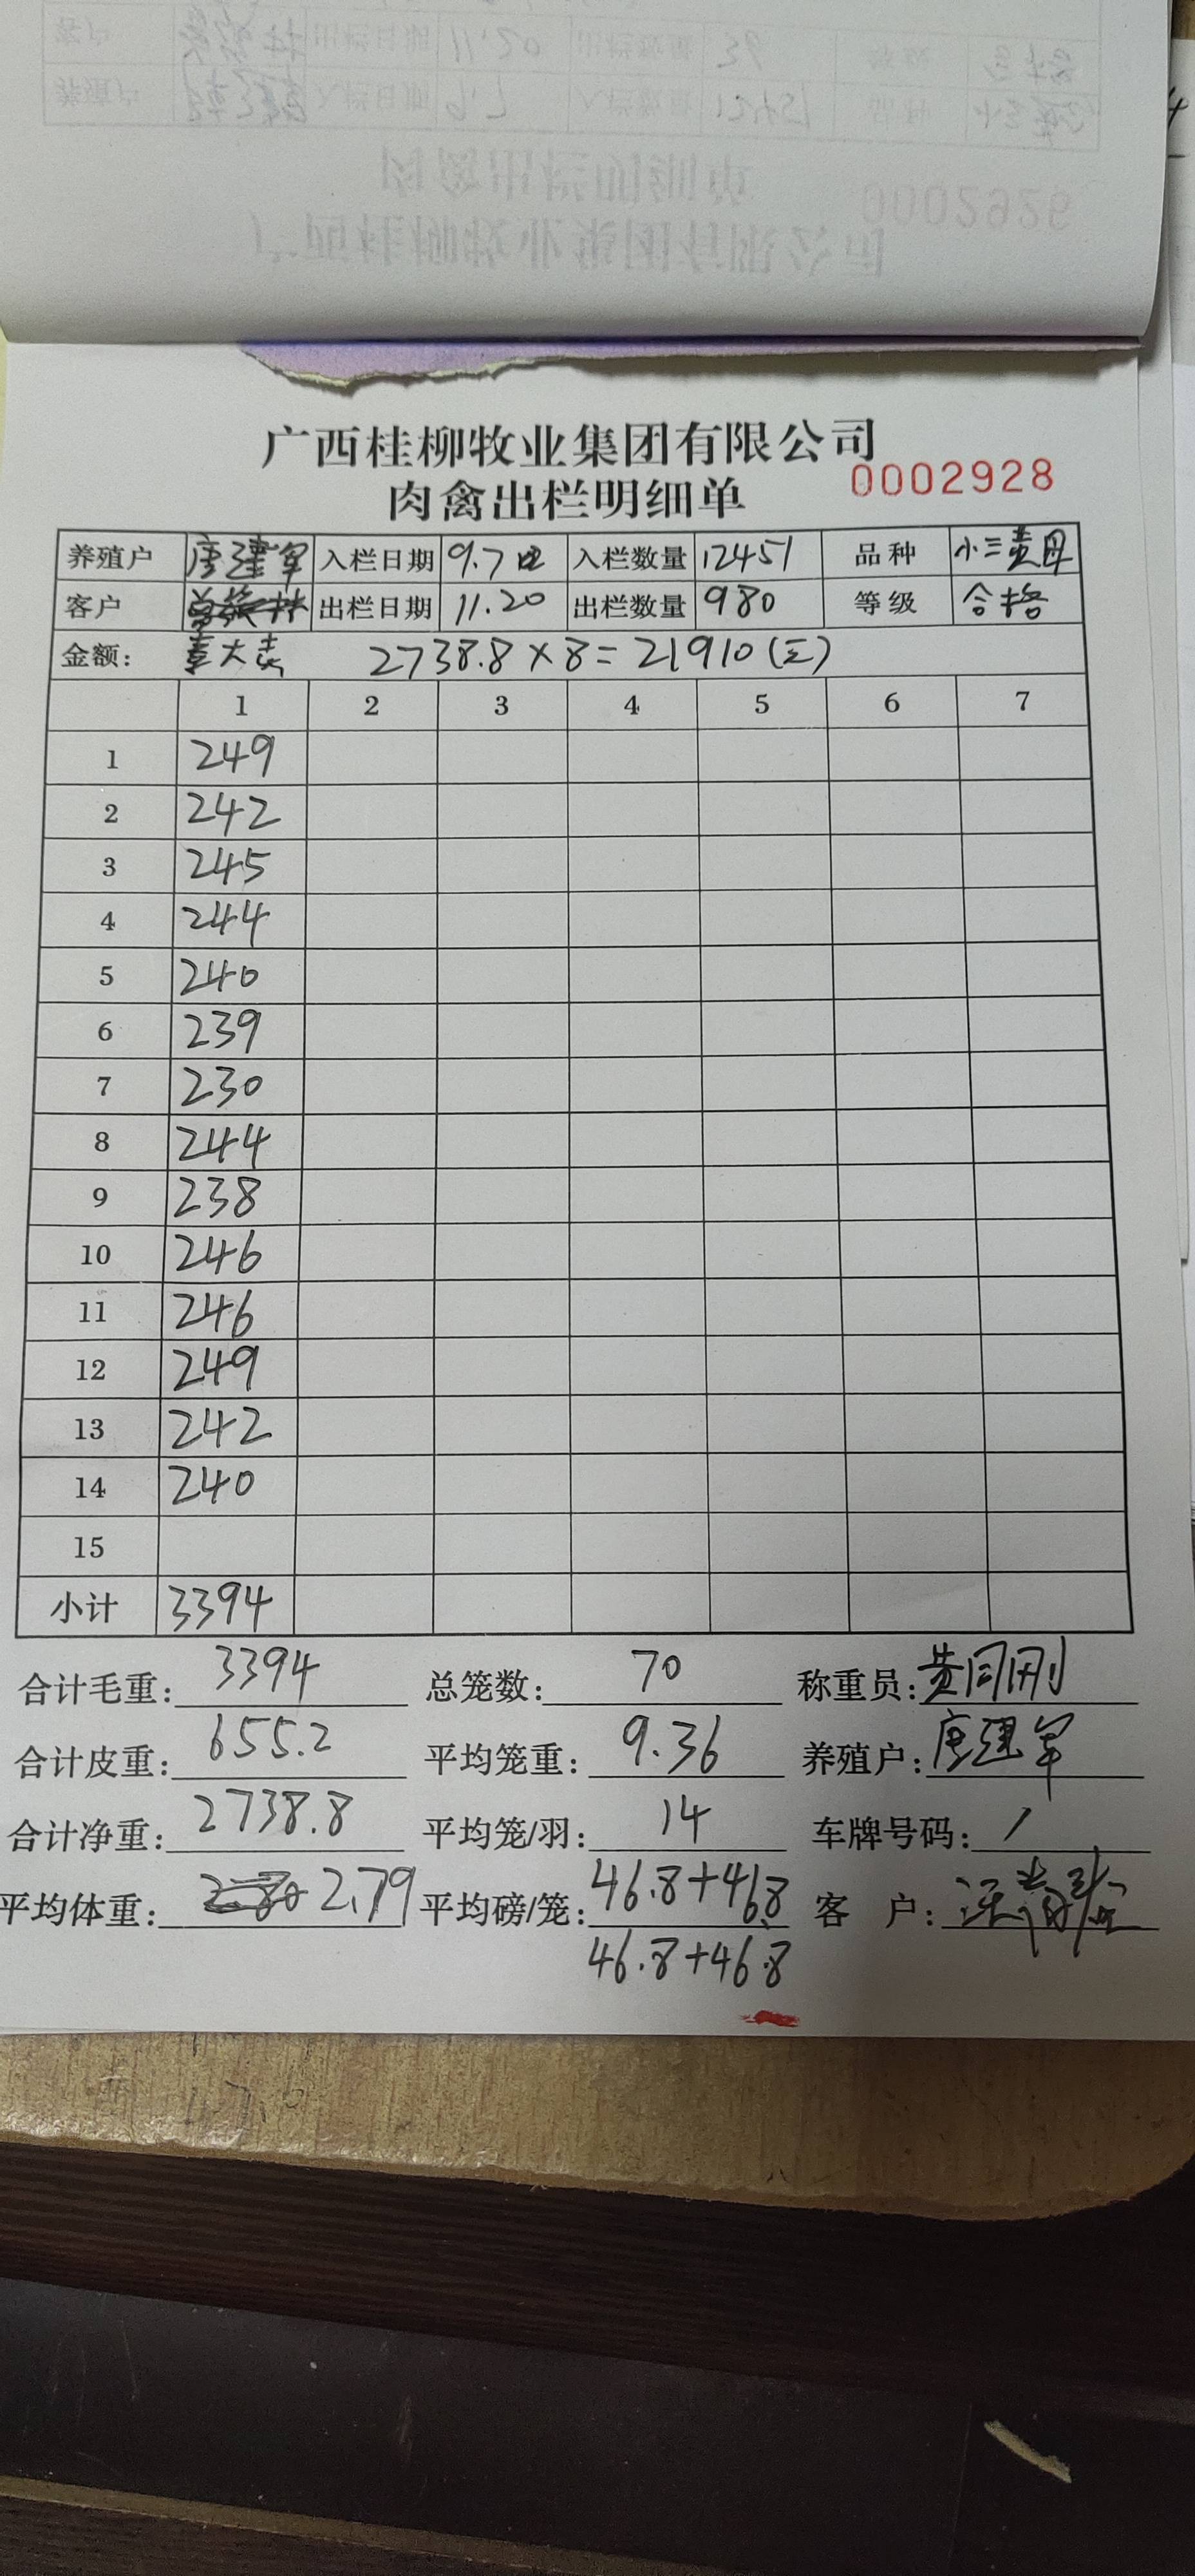 广西桂柳牧业集团有限公司
肉禽出栏明细单 0002928
养殖户 唐建军 入栏日期 9.7 入栏数量 12451 品种 小三黄母
客户 出栏日期 11.20 出栏数量 980 等级 合格
金额: 2738.8×8=21910(元)
1 2 3 4 5 6 7
1 249
2 242
3 245
4 244
5 240
6 239
7 230
8 244
9 238
10 246
11 246
12 249
13 242
14 240
15
小计 3394
合计毛重: 3394 总笼数: 70 称重员: 黄同刚
合计皮重: 655.2 平均笼重: 9.36 养殖户: 唐建军
合计净重: 2738.8 平均笼/羽: 14 车牌号码: /
平均体重: 2.79 平均磅/笼: 46.8+46.8 客 户:
46.8+46.8